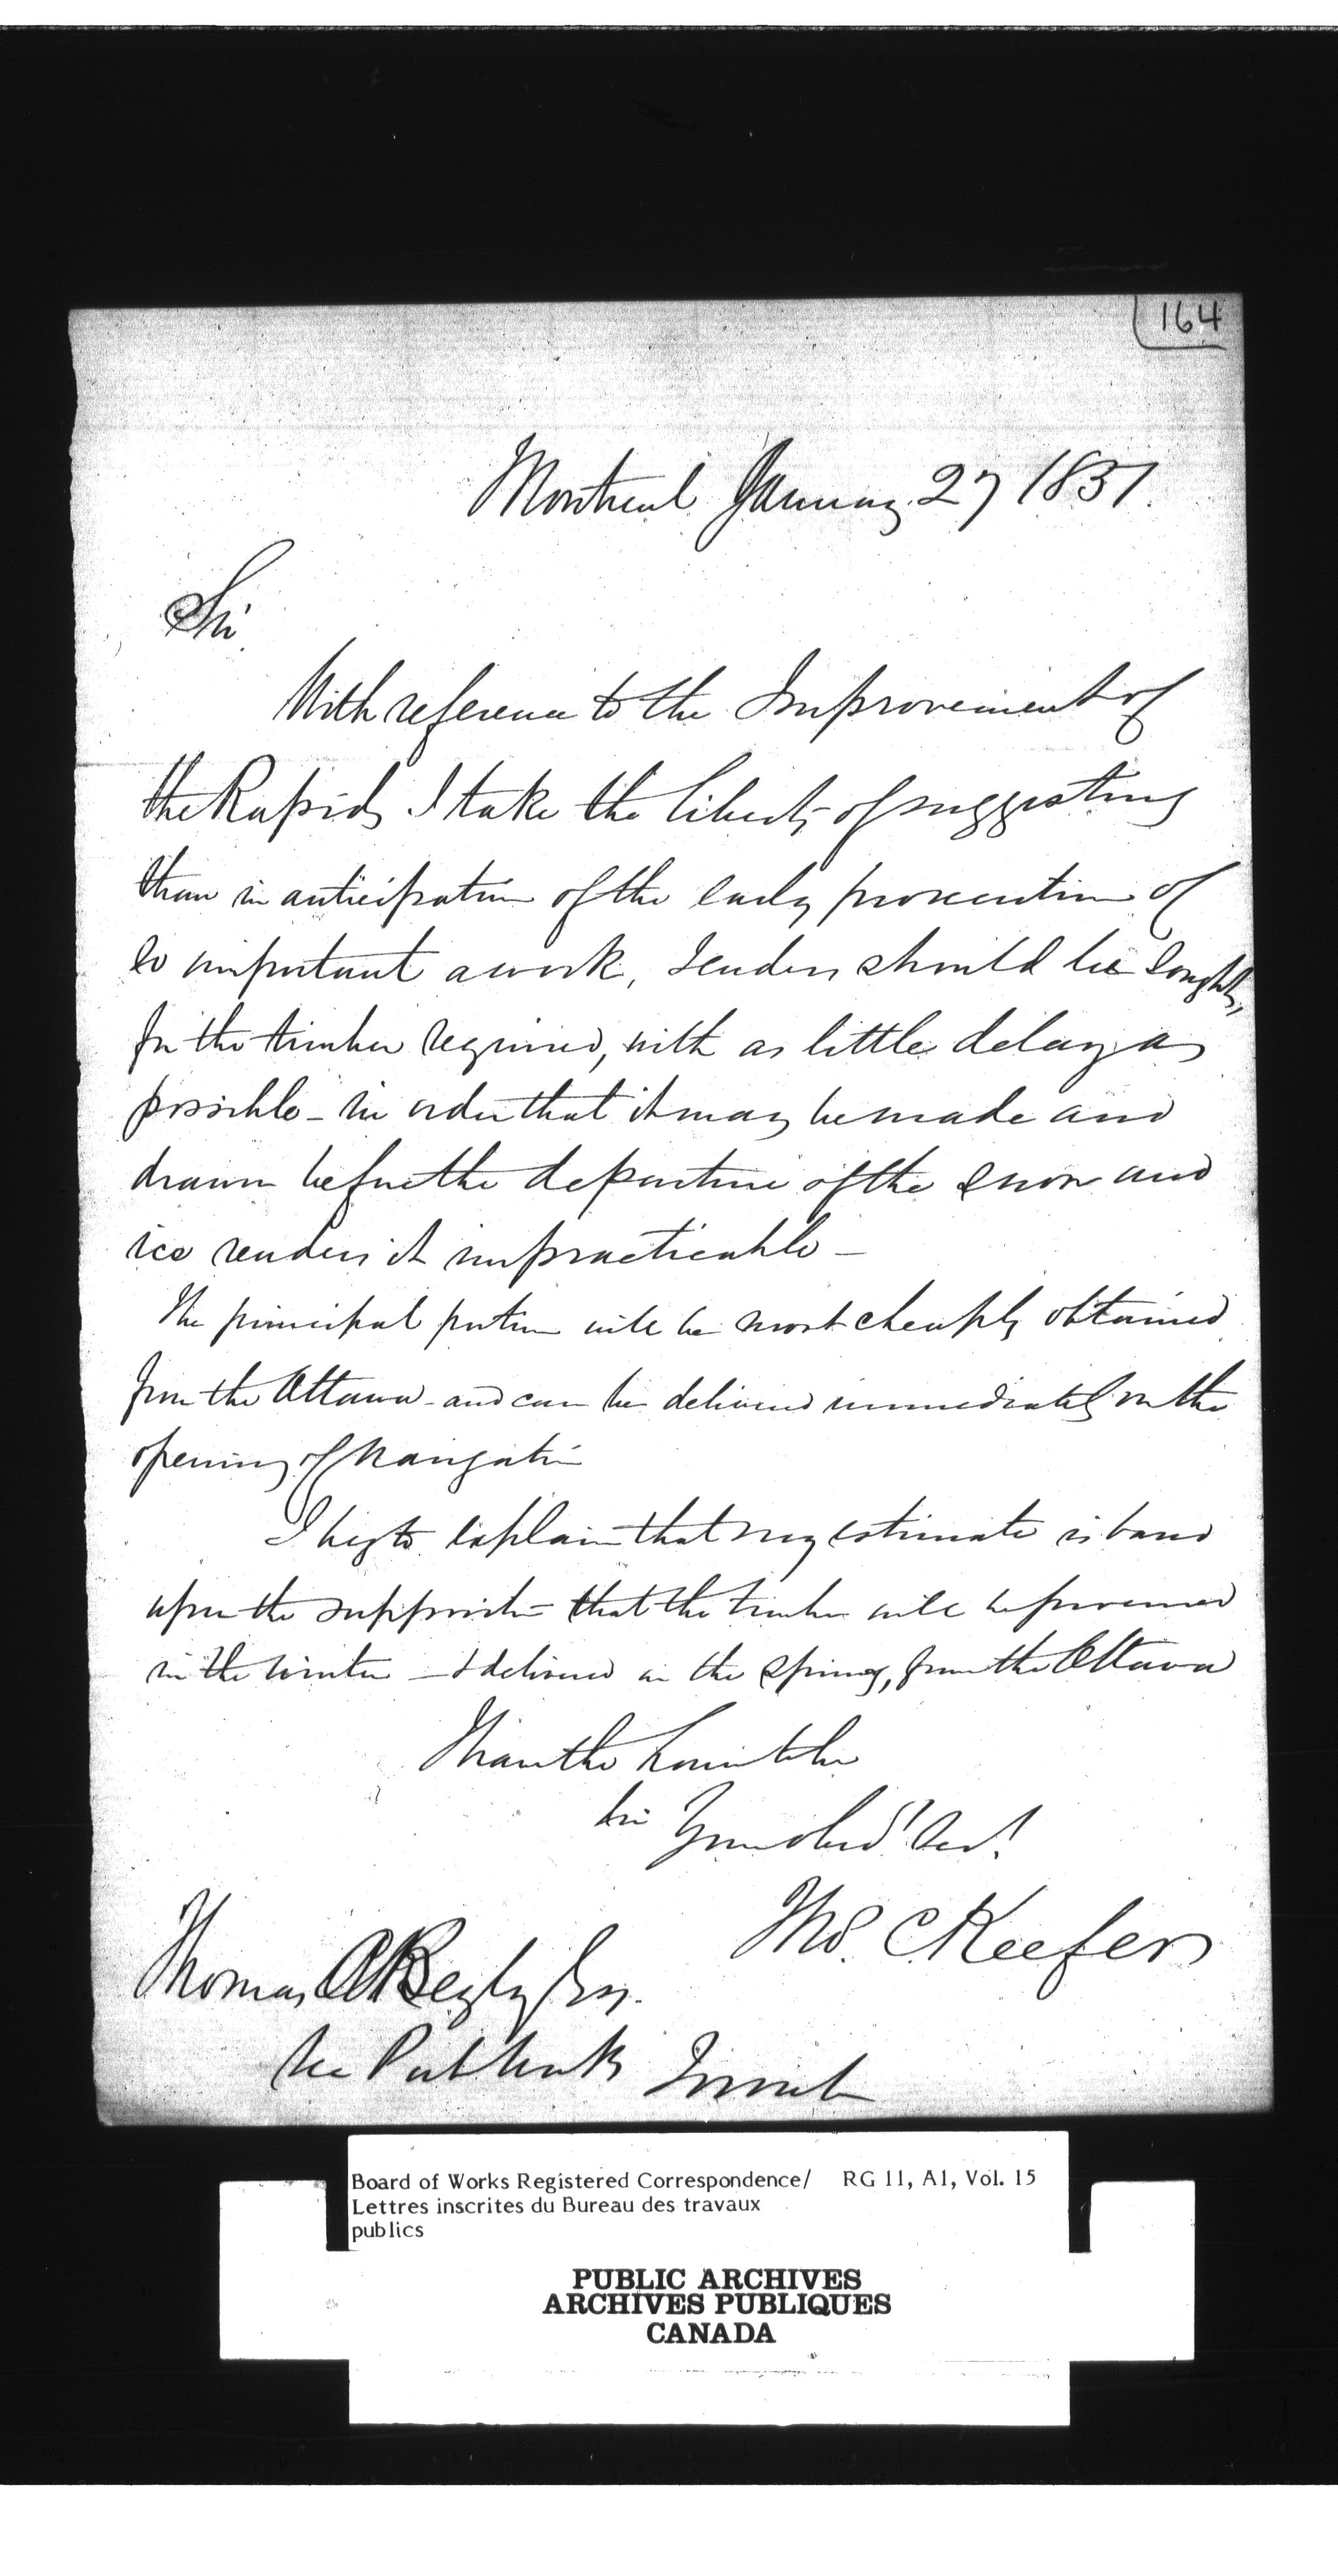 164
Montreal January 27 1851.
Sir
With reference to the Improvement of
the Rapids I take the liberty of suggesting
that in anticipation of the early prosecution of
so important a work, tenders should be sought,
for the timber required, with as little delay as
possible - in order that it may be made and
drawn before the departure of the snow and
ice renders it impracticable -
The principal portion will be most cheaply obtained
from the Ottawa - and can be delivered immediately on the
opening of Navigation
I beg to explain that my estimate is based
upon the supposition that the timber will be procured
in the winter - & delivered in the spring, from the Ottawa
I have the honor to be
Sir Your obed.t Ser.t
Tho.s C Keefer
Thomas A Begly Esq.
Sec Pub Works Toronto
Board of Works Registered Correspondence/ RG 11, A1, Vol. 15
Lettres inscrites du Bureau des travaux
publics
PUBLIC ARCHIVES
ARCHIVES PUBLIQUES
CANADA